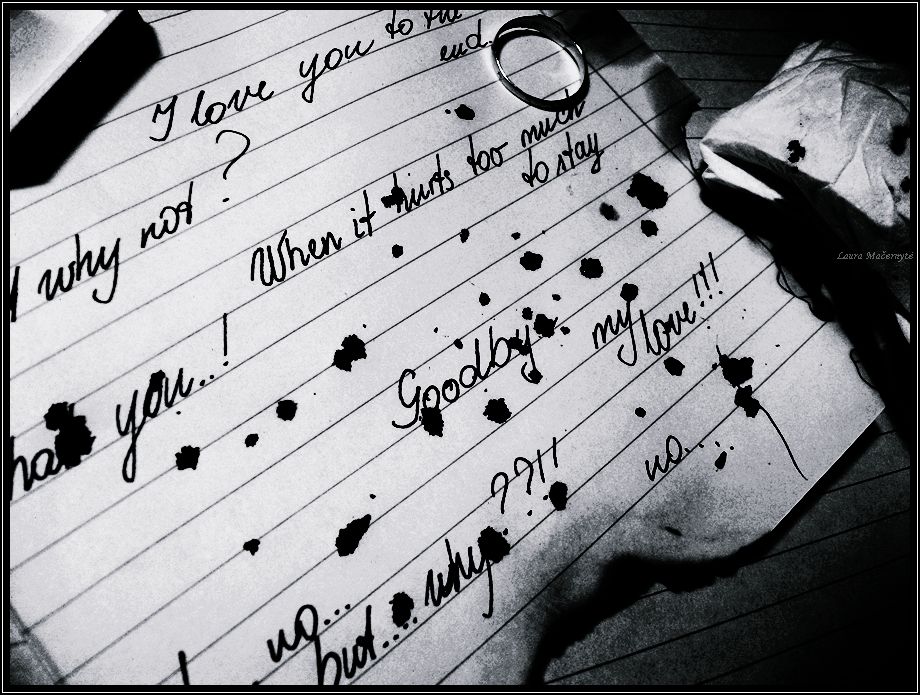 I love you to the
end.
why not?
When it hurts too much
to stay
you..!
Goodby my love!!!
??!!
no...
but.... why...
no...
Laura Mačernytė